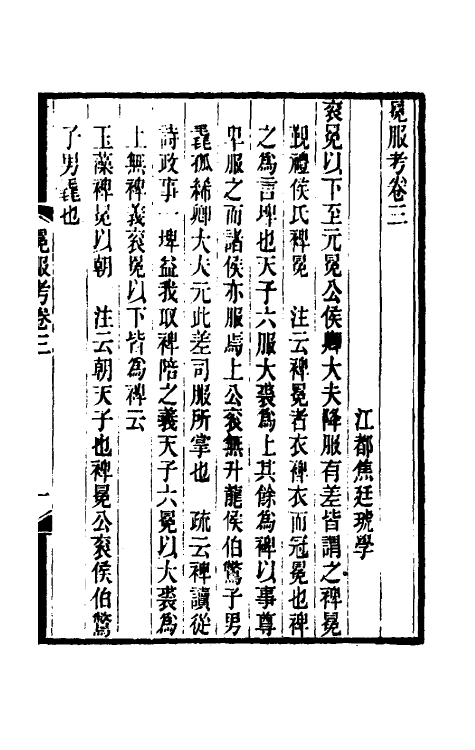 冕服考卷三
江都焦廷琥學
袞冕以下至元冕公侯卿大夫降服有差皆謂之裨冕
覲禮侯氏裨冕 注云裨冕者衣裨衣而冠冕也裨
之爲言埤也天子六服大裘爲上其餘爲裨以事尊
卑服之而諸侯亦服焉上公袞無升龍侯伯鷩子男
毳孤絺卿大夫元此差司服所掌也 疏云裨讀從
詩政事一埤益我取裨陪之義天子六冕以大裘爲
上無裨義袞冕以下皆爲裨云
玉藻裨冕以朝 注云朝天子也裨冕公袞侯伯鷩
子男毳也
冕服考卷三
一